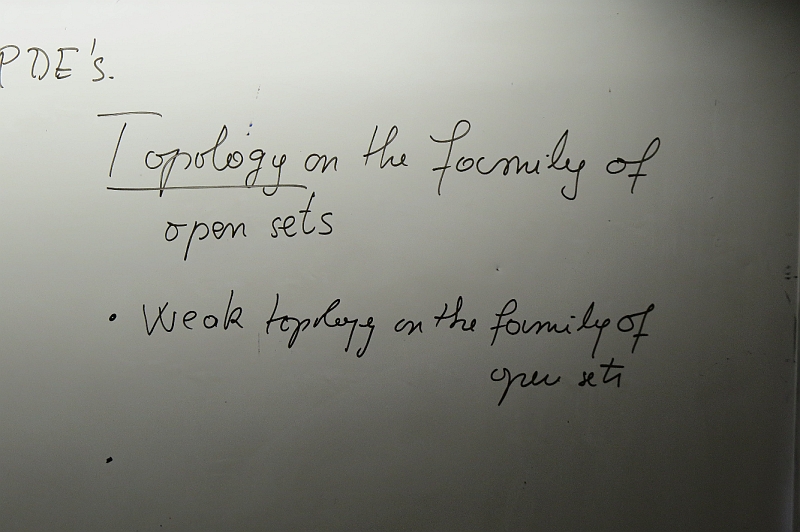 PDE's.
Topology on the family of
open sets
• Weak topology on the family of
open sets
•